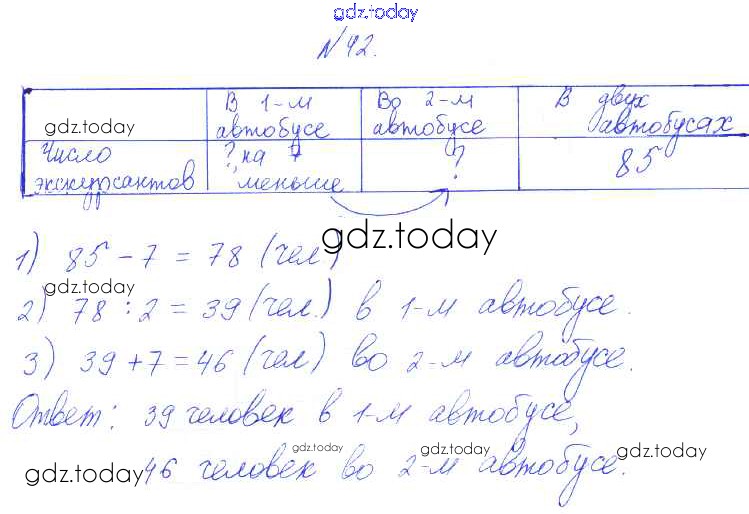 gdz.today
№ 42.
В 1-м Во 2-м В двух
gdz.today автобусе автобусе автобусах
Число ?, на 7 ? 85
экскурсантов меньше
gdz.today
1) 85 - 7 = 78 (чел)
gdz.today
2) 78 : 2 = 39 (чел.) в 1-м автобусе.
3) 39 + 7 = 46 (чел) во 2-м автобусе.
Ответ: 39 человек в 1-м автобусе,
gdz.today gdz.today gdz.today
gdz.today 46 человек во 2-м автобусе.